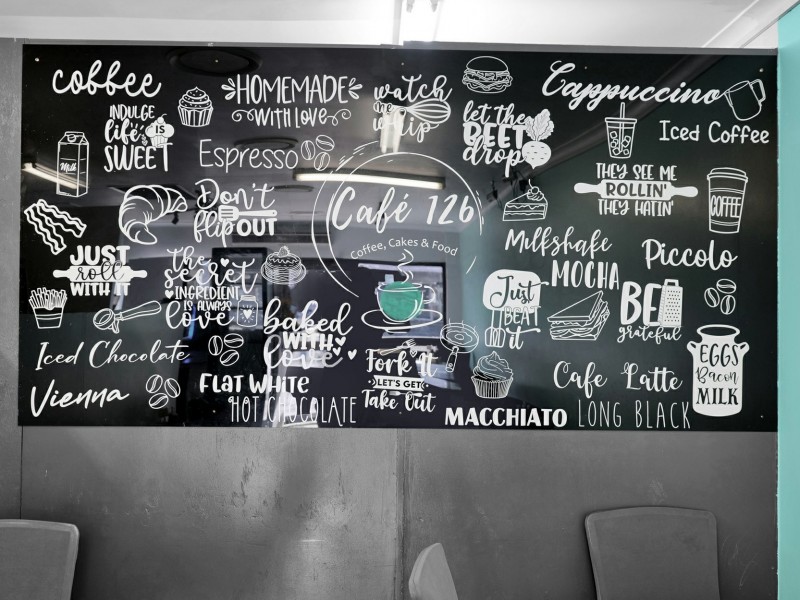 coffee
INDULGE
life's IS
SWEET
Milk
HOMEMADE
WITH LOVE
watch
the
whip
Espresso
let the
BEET
drop
Cappuccino
Iced Coffee
THEY SEE ME
ROLLIN'
THEY HATIN'
COFFEE
Don't
flip OUT
Café 12b
Coffee, Cakes & Food
JUST
roll
WITH IT
the
secret
INGREDIENT
IS ALWAYS
love
baked
WITH
love
Milkshake
MOCHA
Piccolo
Just
BEAT
it
BE
grateful
EGGS
Bacon
MILK
Iced Chocolate
Vienna
FLAT WHITE
HOT CHOCOLATE
Fork It
LET'S GET
Take Out
Cafe Latte
MACCHIATO
LONG BLACK